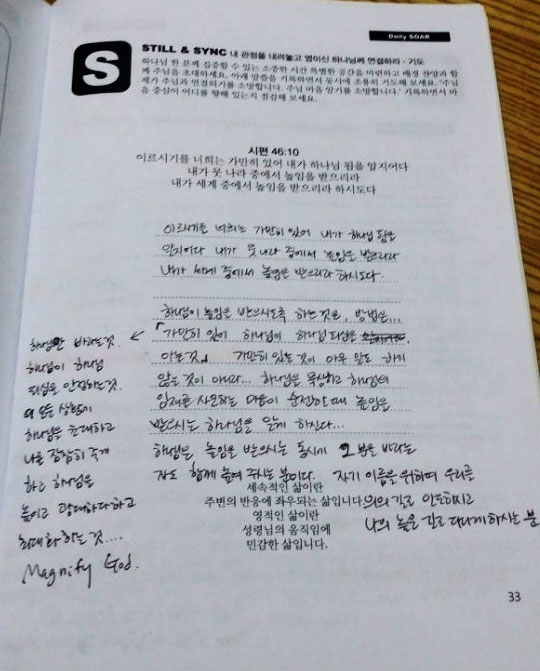 Daily SOAR
S
STILL & SYNC 내 관점을 내려놓고 영이신 하나님께 연결하라 · 기도
하나님 한 분께 집중할 수 있는 소중한 시간 특별한 공간을 마련하고 배경 찬양과 함
께 주님을 초대하세요. 아래 말씀을 기록하면서 동시에 조용히 기도해 보세요. '주님
제가 주님과 연결되기를 소망합니다. 주님 마음 알기를 소망합니다.' 기록하면서 마
음 중심이 어디를 향해 있는지 점검해 보세요.
시편 46:10
이르시기를 너희는 가만히 있어 내가 하나님 됨을 알지어다
내가 뭇 나라 중에서 높임을 받으리라
내가 세계 중에서 높임을 받으리라 하시도다
이르시기를 너희는 가만히 있어 내가 하나님 됨을
알지어다 내가 뭇 나라 중에서 높임을 받으리라
내가 세계 중에서 높임을 받으리라 하시도다.
하나님이 높임을 받으시도록 하는 것은, 방법은...
「가만히 있어 하나님이 하나님 되심을
아는 것」 가만히 있는 것이 아무 일도 하지
않는 것이 아니라... 하나님을 묵상하고 하나님의
임재를 사모하는 마음이 순전할 때 높임을
받으시는 하나님을 알게 하신다...
하나님은 높임을 받으시는 동시에 그 분을 바라는
자도 함께 높여 주시는 분이다. 자기 이름을 위하여 우리를
의의 길로 인도하시고
나의 높은 길로 다니게 하시는 분
하나님만 바라는 것
하나님이 하나님
되심을 인정하는 것.
내 모든 상황에
하나님을 초대하고
나를 잠잠히 죽게
하고 하나님을
높이고 광대하다하고
최대화 하는 것....
Magnify God.
세속적인 삶이란
주변의 반응에 좌우되는 삶입니다.
영적인 삶이란
성령님의 움직임에
민감한 삶입니다.
33